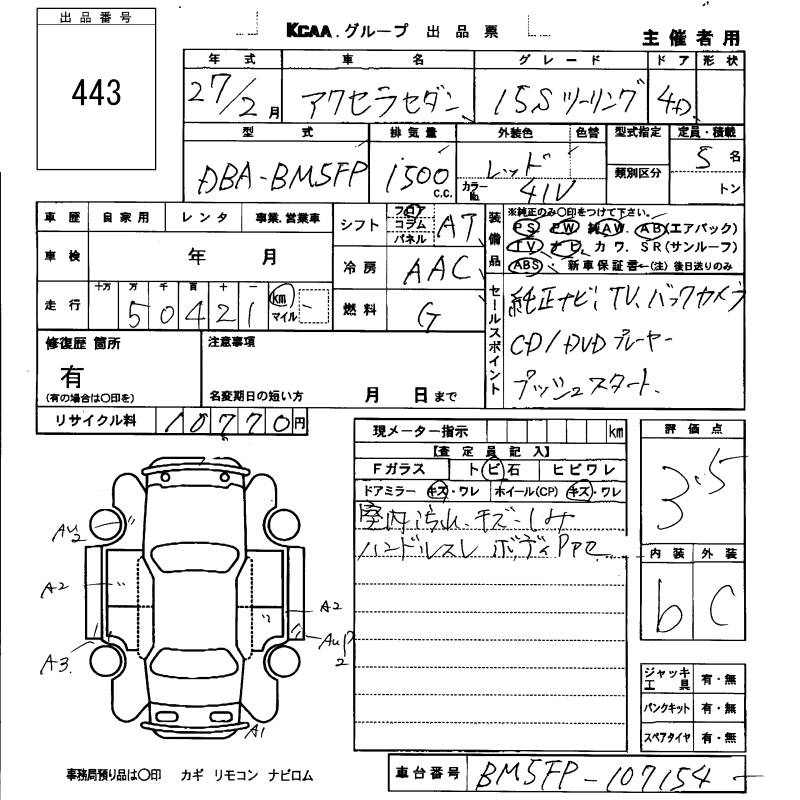 出品番号
443
KCAA.グループ 出品票
主催者用
年式 車名 グレード ドア 形状
27/2月 アクセラセダン 15Sツーリング 4D
型式 排気量 外装色 色替 型式指定 定員・積載
DBA-BM5FP 1500 C.C. レッド 5名
カラーNo. 41V 類別区分 トン
車歴 自家用 レンタ 事業.営業車
車検 年 月
走行 十万 万 千 百 十 一
50421 km マイル
シフト フロア コラム パネル AT
冷房 AAC
燃料 G
装備品
※純正のみ〇印をつけて下さい。
PS PW 純AW. AB(エアバッグ)
TV ナビ. カワ. SR(サンルーフ)
ABS. 新車保証書←(注)後日送りのみ
セールスポイント
純正ナビ、TV、バックカメラ
CD/DVDプレーヤー
プッシュスタート、
修復歴 箇所
有
(有の場合は〇印を)
注意事項
名変期日の短い方 月 日まで
リサイクル料 10770円
現メーター指示 km
【査定員記入】
Fガラス トビ石 ヒビワレ
ドアミラー キズ・ワレ ホイール(CP) キズ・ワレ
室内汚れ、キズ・しみ
ハンドルスレ ボディ
評価点
3.5
内装 外装
b C
AU2
A2
A3
A2
AUP2
A1
ジャッキ工具 有・無
パンクキット 有・無
スペアタイヤ 有・無
事務局預り品は〇印 カギ リモコン ナビロム
車台番号 BM5FP-107154